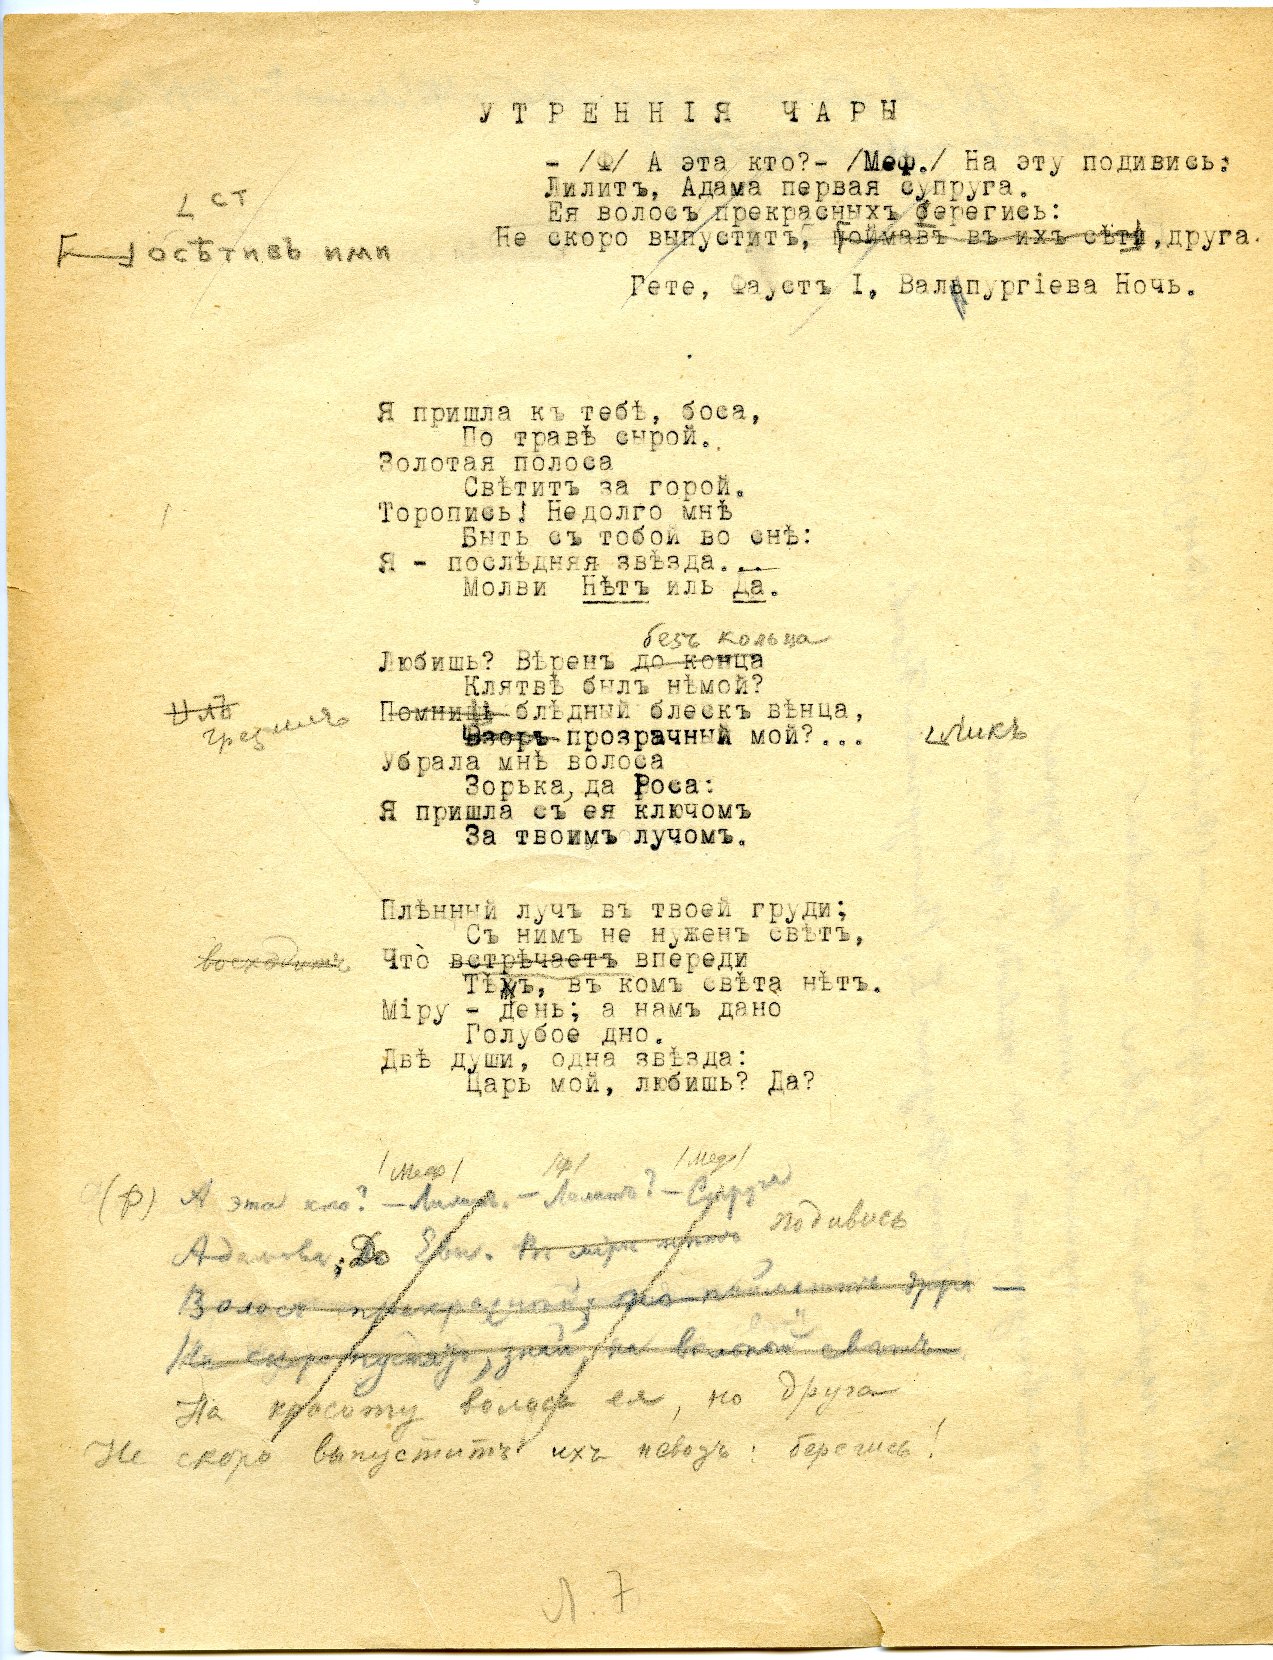 УТРЕННІЯ ЧАРЫ
- /Ф/ А эта кто?- /Меф./ На эту подивись:
Лилитъ, Адама первая супруга.
Ея волосъ прекрасныхъ берегись:
Не скоро выпуститъ, поймавъ въ ихъ сѣти, друга.
ст
осѣтивъ ими
Гете, Фаустъ I, Вальпургіева Ночь.
Я пришла къ тебѣ, боса,
По травѣ сырой.
Золотая полоса
Свѣтитъ за горой.
Торопись! Недолго мнѣ
Быть съ тобой во снѣ:
Я - послѣдняя звѣзда...
Молви Нѣтъ иль Да.
безъ кольца
Любишь? Вѣренъ до конца
Клятвѣ былъ нѣмой?
Иль Помнишь блѣдный блескъ вѣнца,
грезилъ
Взоръ прозрачный мой?... Ликъ
Убрала мнѣ волоса
Зорька, да Роса:
Я пришла съ ея ключомъ
За твоимъ лучомъ.
Плѣнный лучъ въ твоей груди;
Съ нимъ не нуженъ свѣтъ,
восходитъ Что̀ встрѣчаетъ впереди
Тѣхъ, въ комъ свѣта нѣтъ.
Міру - День; а намъ дано
Голубое дно.
Двѣ души, одна звѣзда:
Царь мой, любишь? Да?
/Меф/ /Ф/ /Меф/
(Ф) А эта кто? - Лилитъ. - Лилитъ? - Супруга
Адамова; До Евы. подивись
Волосъ прекрасный; но поймаетъ друга —
Не скоро пуститъ, знай, на
На красоту волосъ ея, но друга
Не скоро выпуститъ ихъ неводъ: берегись!
Л. 7